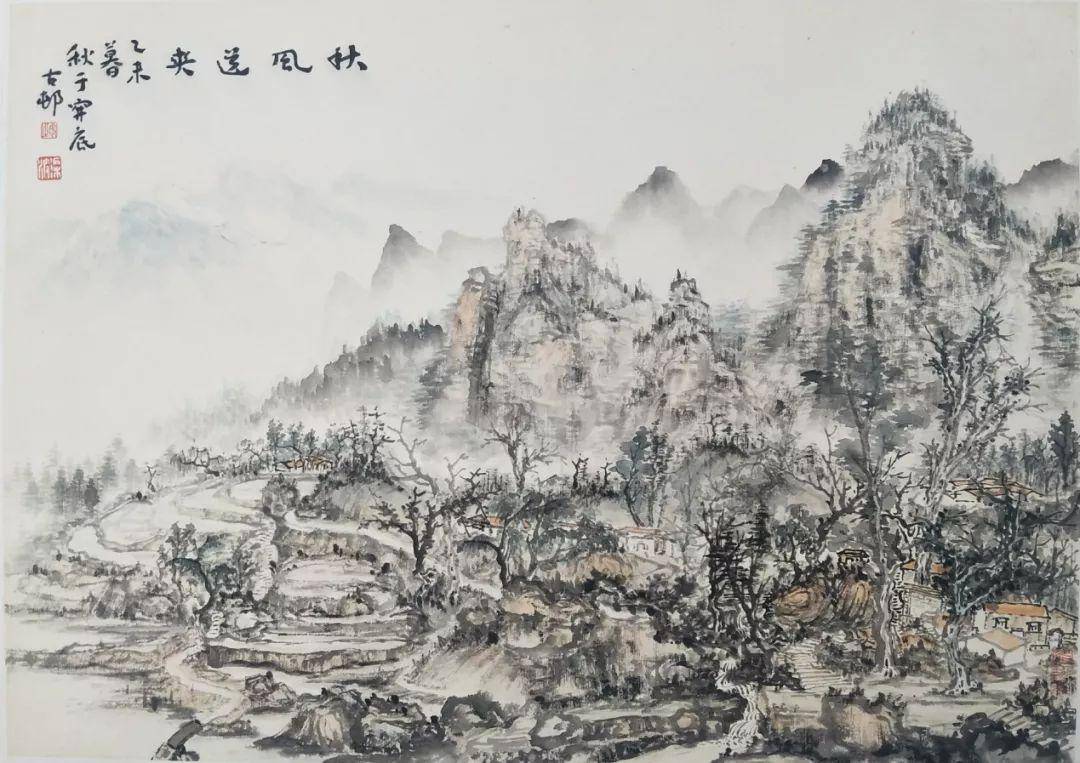 秋風送爽
乙未暮
秋于穽底
古邨